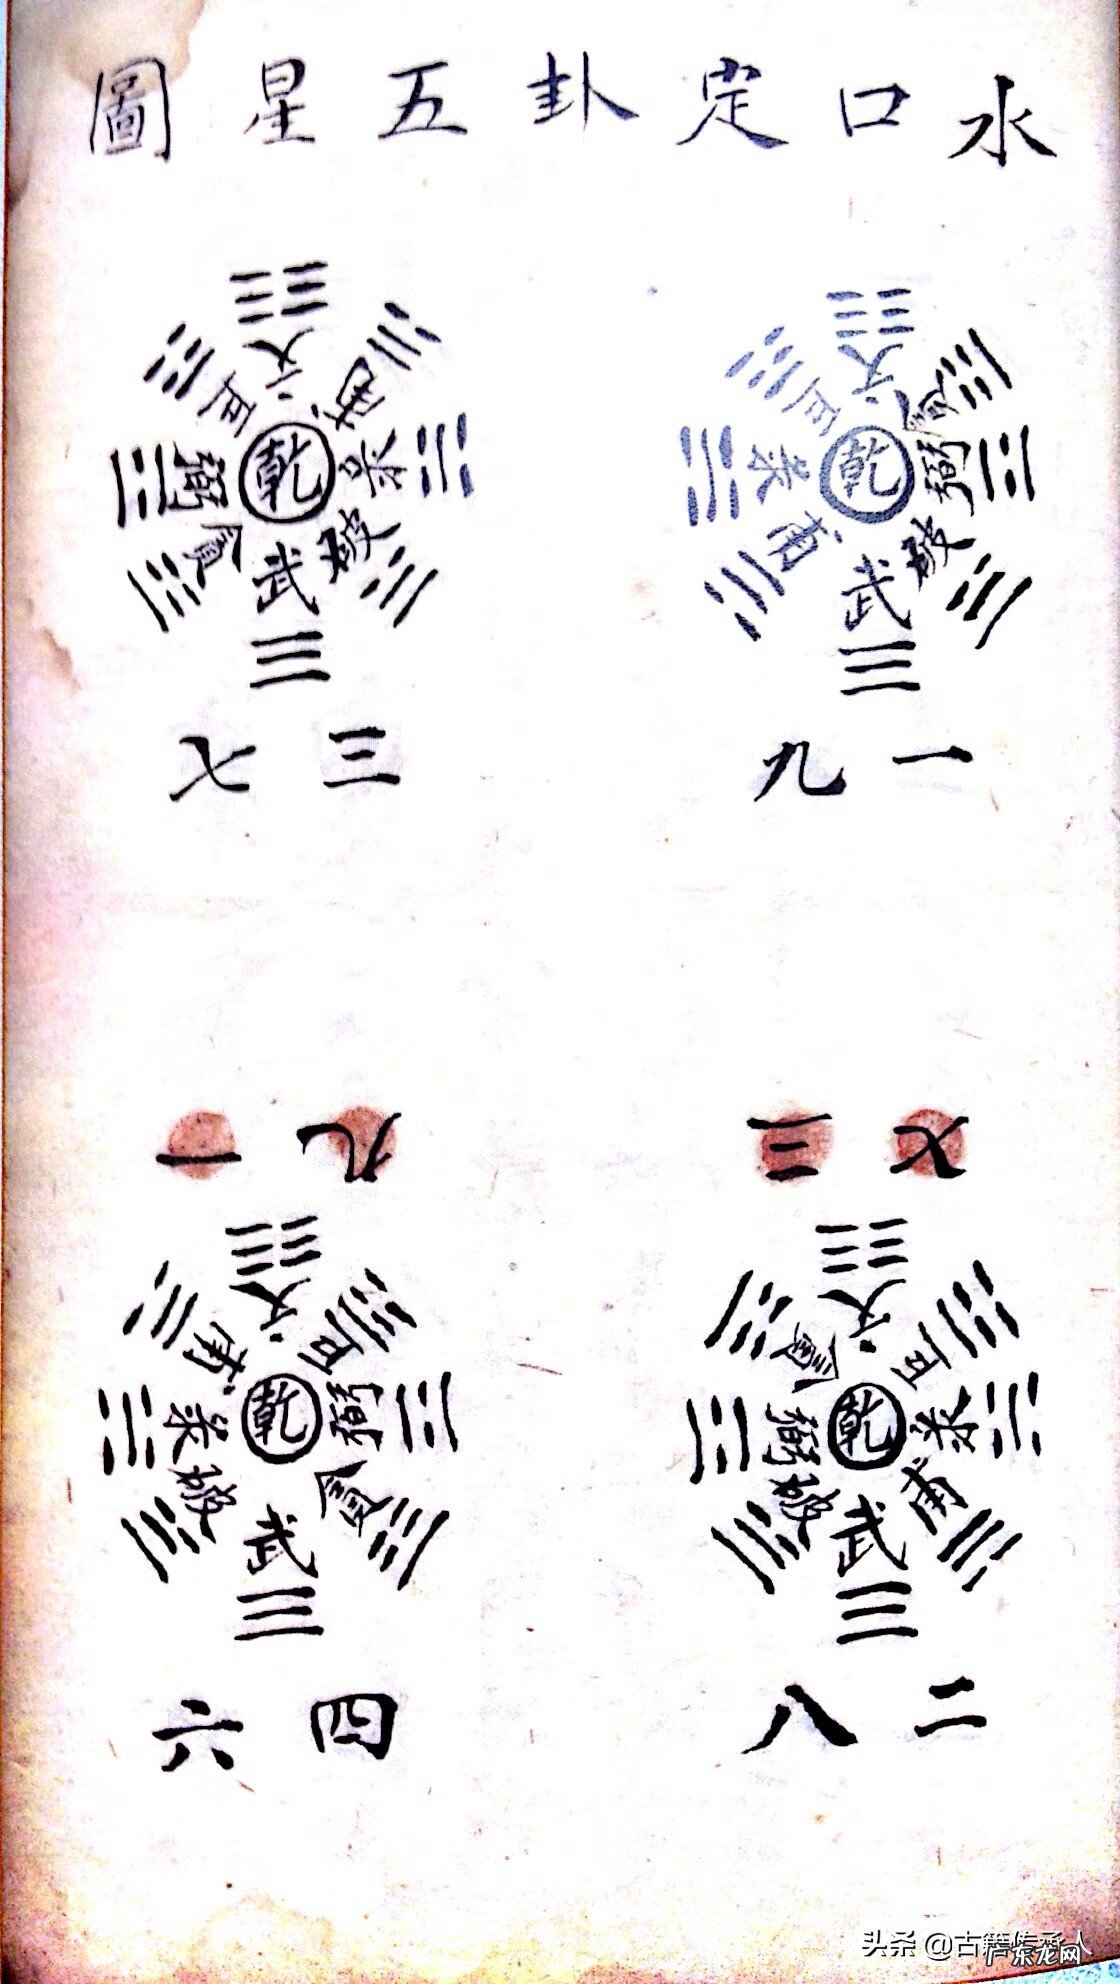 水口定卦五星圖
文
貪
弼
破
武
甫
录
巨
乾
一九
文
甫
录
破
武
貪
弼
巨
乾
三七
七三
文
巨
录
甫
武
破
弼
貪
乾
二八
九一
文
巨
弼
貪
武
破
录
甫
乾
四六
头条 @古籍传承人
广东龙网